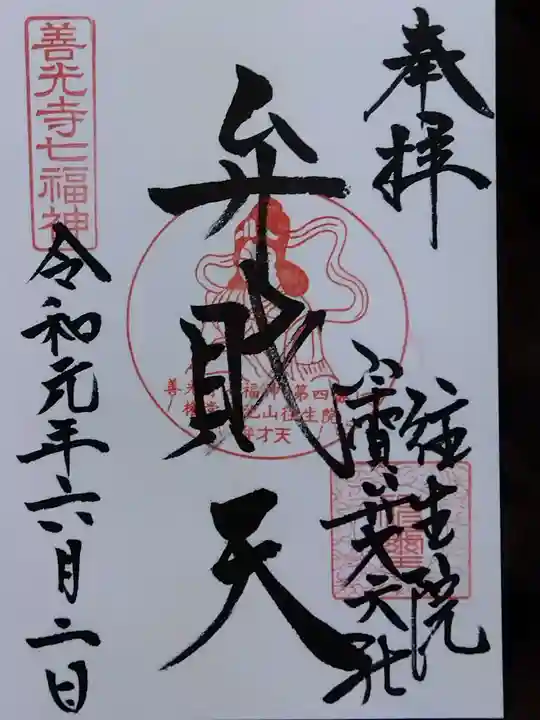 奉拝
往生院
弁財天社
弁財天
善光寺七福神
令和元年六月二日
善光寺七福神第四番
山往生院
弁才天